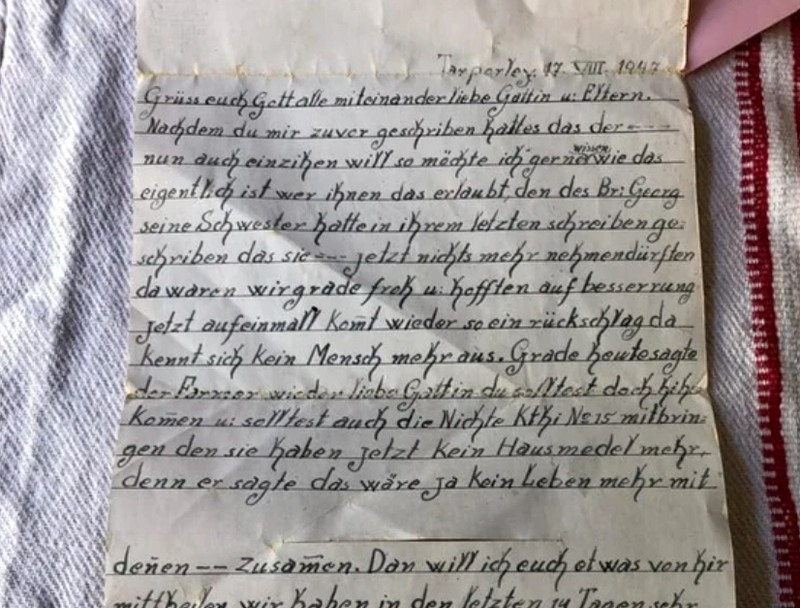 Tarporley, 17. VIII. 1947
Grüss euch Gott alle miteinander liebe Gattin u: Eltern.
Nachdem du mir zuvor geschriben hattes das der ----
nun auch einzihen will so möchte ich gerne wissen wie das
eigentlich ist wer ihnen das erlaubt, den des Br: Georg
seine Schwester hatte in ihrem letzten schreiben ge:
schriben das sie --- jetzt nichts mehr nehmen dürften
da waren wir grade froh u: hofften auf besserrung
jetzt aufeinmall kom̄t wieder so ein rückschlag da
kennt sich kein Mensch mehr aus. Grade heute sagte
der Farmer wieder liebe Gattin du solltest doch
kom̄en u: solltest auch die Nichte Kthi No 15 mitbrin:
gen den sie haben jetzt kein Hausmedel mehr,
denn er sagte das wäre ja kein Leben mehr mit
den̄en -- zusam̄en. Dan will ich euch etwas von hir
mittheilen wir haben in den letzten 14 Tagen sehr